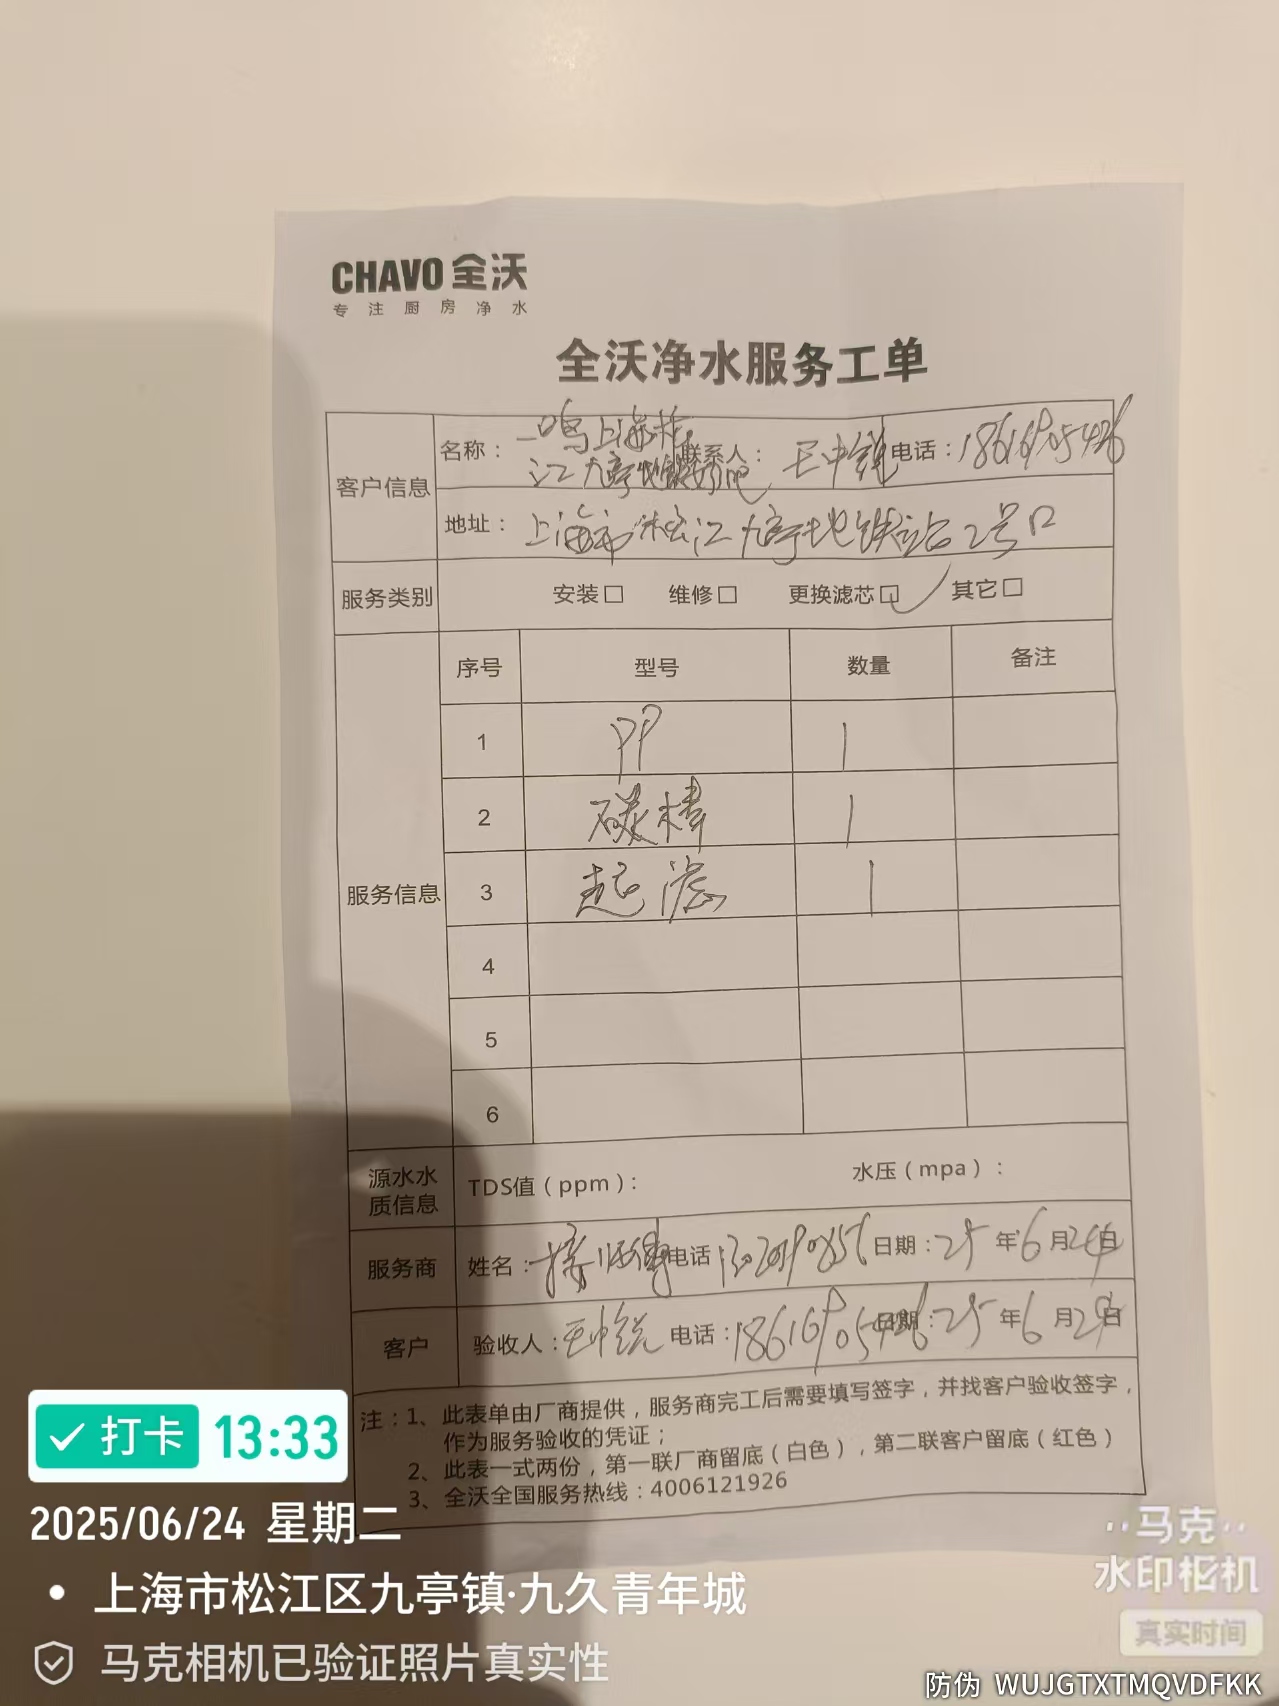 CHAVO 全沃
专注厨房净水
全沃净水服务工单
客户信息
名称：一鸣上海松江九亭地铁
联系人：王中锐 电话：18616905426
地址：上海市松江九亭地铁站2号口
服务类别 安装□ 维修□ 更换滤芯□✓ 其它□
服务信息
序号 型号 数量 备注
1 PP 1
2 碳棒 1
3 起滤 1
4
5
6
源水水质信息 TDS值（ppm）： 水压（mpa）：
服务商 姓名： 师傅 电话 日期：25年6月24日
客户 验收人：王中锐 电话：18616905426 日期：25年6月24日
注：1、此表单由厂商提供，服务商完工后需要填写签字，并找客户验收签字，
作为服务验收的凭证；
2、此表一式两份，第一联厂商留底（白色），第二联客户留底（红色）
3、全沃全国服务热线：4006121926
打卡 13:33
2025/06/24 星期二
上海市松江区九亭镇·九久青年城
马克相机已验证照片真实性
马克
水印相机
真实时间
防伪 WUJGTXTMQVDFKK